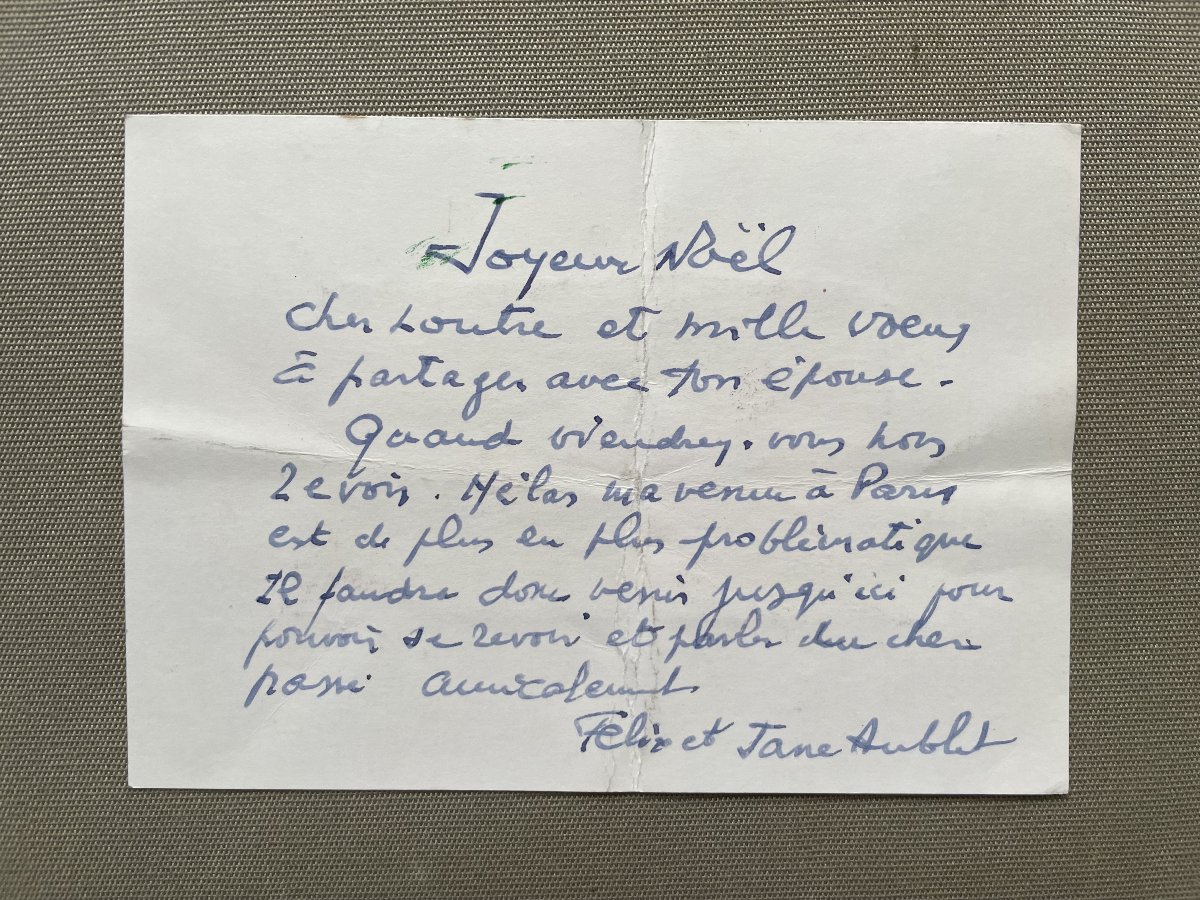 Joyeux Noël
Cher Loutre et mille voeux
à partager avec ton épouse.
Quand viendrez-vous nous
revoir. Hélas ma venue à Paris
est de plus en plus problématique
Il faudra donc venir jusqu'ici pour
pouvoir se revoir et parler du cher
passé amicalement
Félix et Jane Aublet